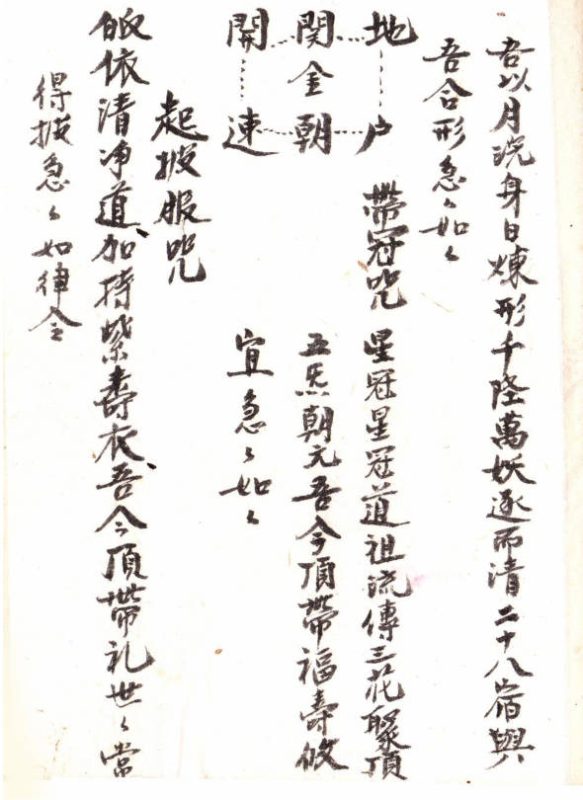 吾以月洗身日煉形千陸萬妖逐而清二十八宿與
吾合形急〻如〻
地 関 開
金
户 朝 連
帶冠咒
星冠星冠道祖流傳三花聚頂
五炁朝元吾今頂帶福壽攸
宜急〻如〻
起披服咒
皈依清净道加持紫壽衣吾今頂帶礼世〻當
得披急〻如律令